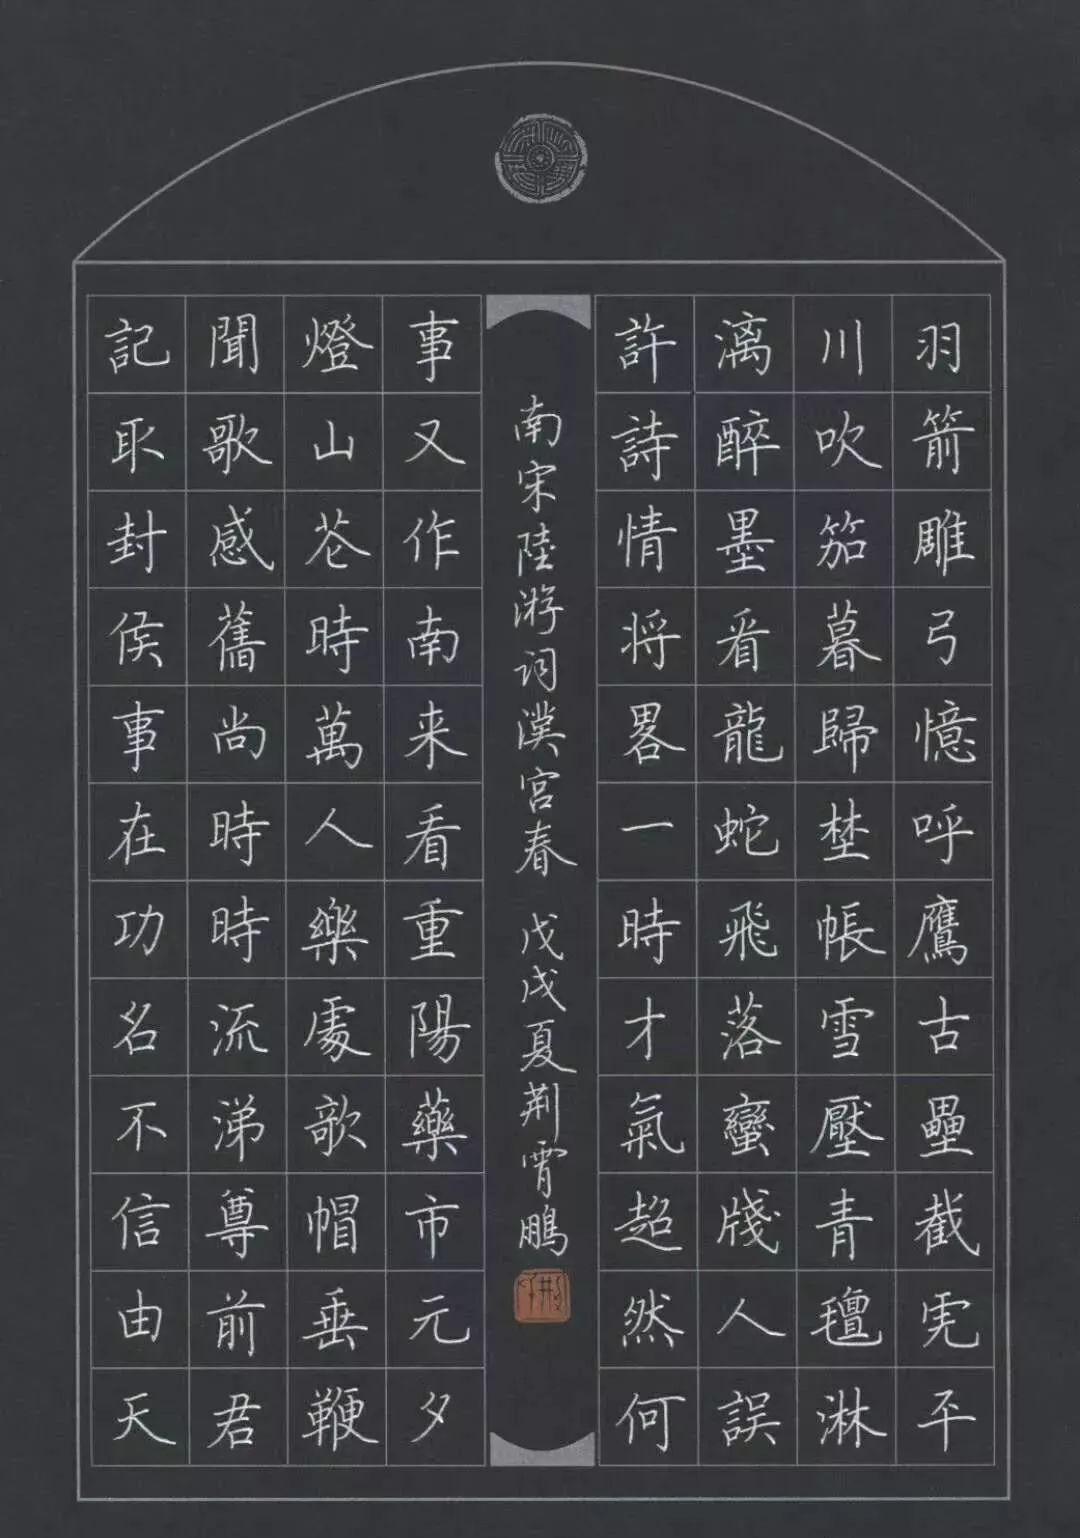 羽箭雕弓憶呼鷹古壘截虎平
川吹笳暮歸埜帳雪壓青氊淋
漓醉墨看龍蛇飛落蠻牋人誤
許詩情将畧一時才氣超然何
南宋陸游词漢宮春 戊戌夏荊霄鵬
事又作南来看重陽藥市元夕
燈山芲時萬人樂處歌帽垂鞭
聞歌感舊尚時時流涕尊前君
記取封侯事在功名不信由天